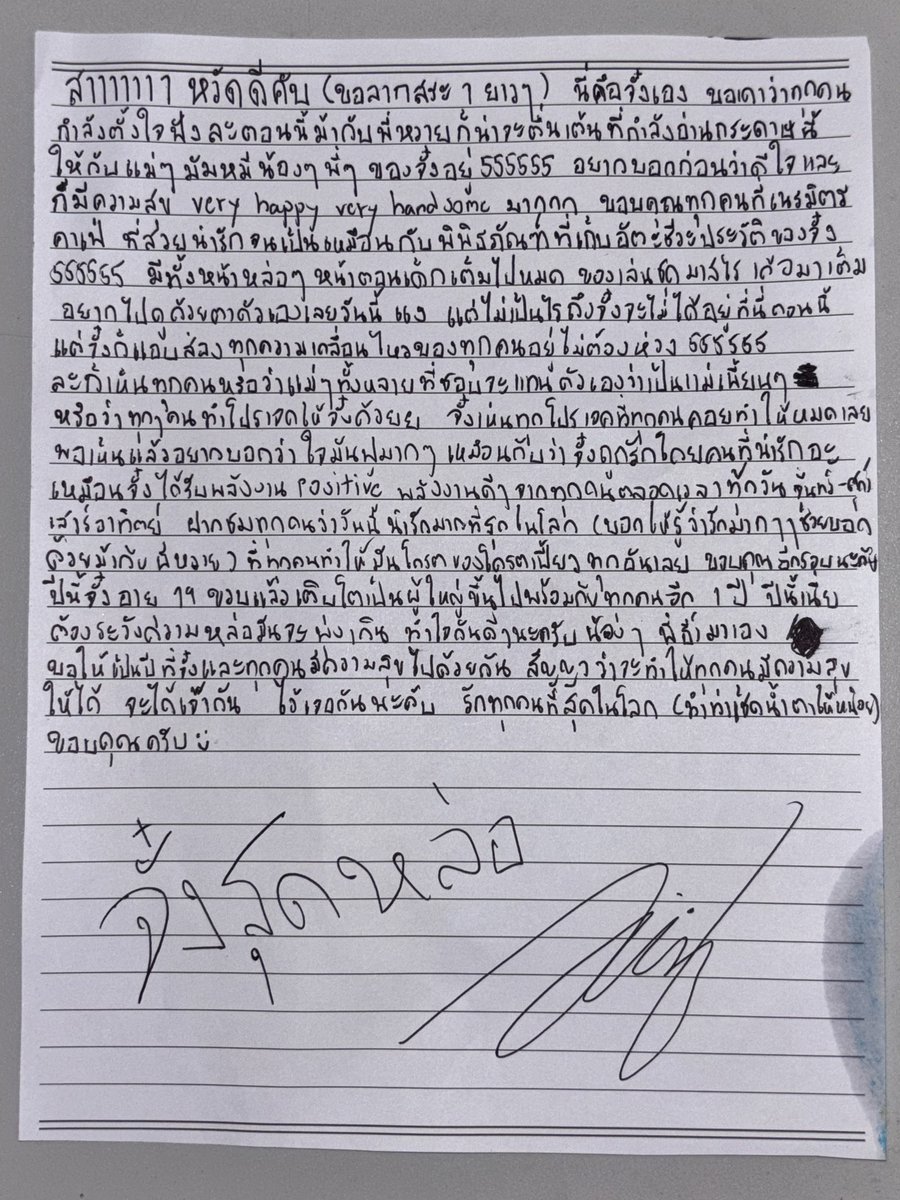 สาาาาาาา หวัดดีคับ (ขอลากสระ า ยาวๆ) นี่คือจั๋งเอง ขอเดาว่าทุกคน
กำลังตั้งใจฟัง ละตอนนี้ม้ากับพี่หวายก็น่าจะตื่นเต้นที่กำลังอ่านกระดาษนี้
ให้กับแม่ๆ มัมหมี น้องๆ พี่ๆ ของจั๋งอยู่ 555555 อยากบอกก่อนว่าดีใจ และ
ก็มีความสุข very happy very handsome มากกก ขอบคุณทุกคนที่เนรมิตร
คาเฟ่ ที่สวยน่ารักจนเป็นเหมือนกับพิพิธภัณฑ์ที่เก็บอัตะชีวะประวัติของจั๋ง
555555 มีทั้งหน้าหล่อๆ หน้าตอนเด็กเต็มไปหมด ของเล่นชุดมาสไรเดอมาเต็ม
อยากไปดูด้วยตาตัวเองเลยวันนี้ แง แต่ไม่เป็นไรถึงจั๋งจะไม่ได้อยู่ที่นี่ตอนนี้
แต่จั๋งก็แอบส่องทุกความเคลื่อนไหวของทุกคนอยู่ไม่ต้องห่วง 555555
ละก็เห็นทุกคนหรือว่าแม่ๆทั้งหลายที่ชอบจะแทนตัวเองว่าเป็นแม่เนี้ยนๆ
หรือว่าทุกๆคนทำโปรเจคให้จั๋งด้วย จั๋งเห็นทุกโปรเจคที่ทุกคนคอยทำให้หมดเลย
พอเห็นแล้วอยากบอกว่า ใจมันฟูมากๆ เหมือนกับว่าจั๋งถูกรักโดยคนที่น่ารักอะ
เหมือนจั๋งได้รับพลังงาน Positive พลังงานดีๆจากทุกคนตลอดเวลาทุกวัน จันทร์-ศุกร์
เสาร์อาทิตย์ ฝากชมทุกคนว่าวันนี้น่ารักมากที่สุดในโลก (บอกให้รู้ว่ารักม่ากๆๆช่วยบอก
ด้วยม้ากับพี่หวาย) ที่ทุกคนทำให้มันโครตของโครตเปี้ยวทุกอันเลย ขอบคุณอีกรอบนะคับ
ปีนี้จั๋งอายุ 19 ขวบแล้วเติบโตเป็นผู้ใหญ่ขึ้นไปพร้อมกับทุกคนอีก 1 ปี ปีนี้เนี่ย
ต้องระวังความหล่อมันจะพุ่งเกิน ทำใจกันดีๆนะครับ น้องๆ พี่ย้ำมาเอง
ขอให้เป็นปีที่จั๋งและทุกคนมีความสุขไปด้วยกัน สัญญาว่าจะทำให้ทุกคนมีความสุข
ให้ได้ จะได้เจ๊ากัน ไว้เจอกันนะคับ รักทุกคนที่สุดในโลก (ทำท่าเช็ดน้ำตาให้หน่อย)
ขอบคุณครับ
จั๋งสุดหล่อ